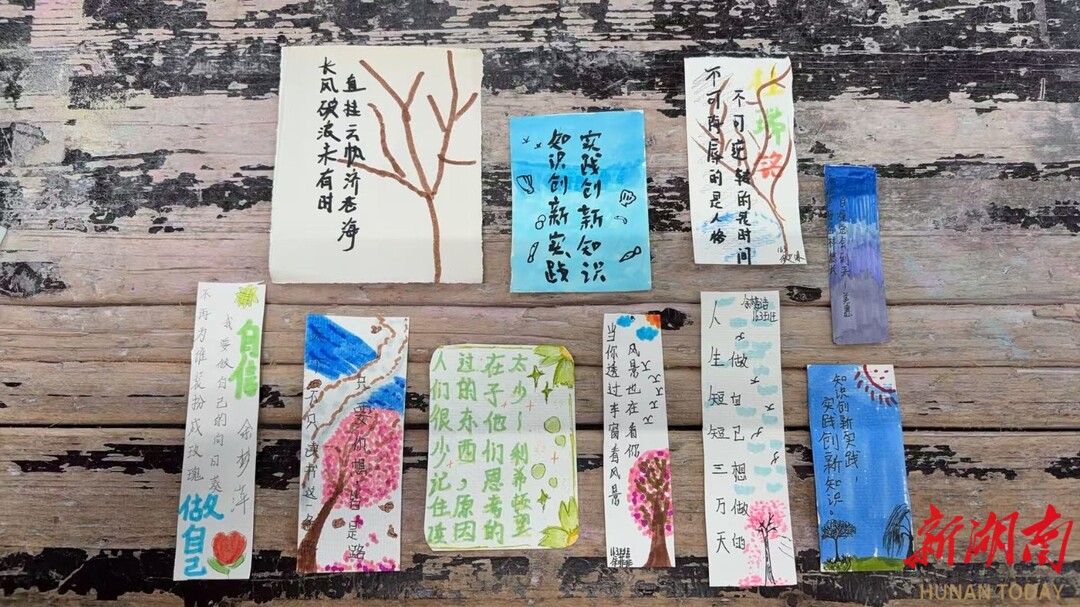 长风破波未有时
直挂云帆济苍海
知识创新实践
实践创新知识
不可侮辱的是人格
不可逆转的是时间
不再为谁装扮成玫瑰
我要做自己的向日葵
自信
余梦萍
做自己
不只读书这一条
只要你
皆是路
人们很少记住读
过的东西，原因
在于他们思考的
太少—利希顿堡
当你透过车窗看风景
风景也在看你
人生短短三万天
做自己想做的
163班
知识创新实践，
实践创新知识。
新湖南
HUNAN TODAY